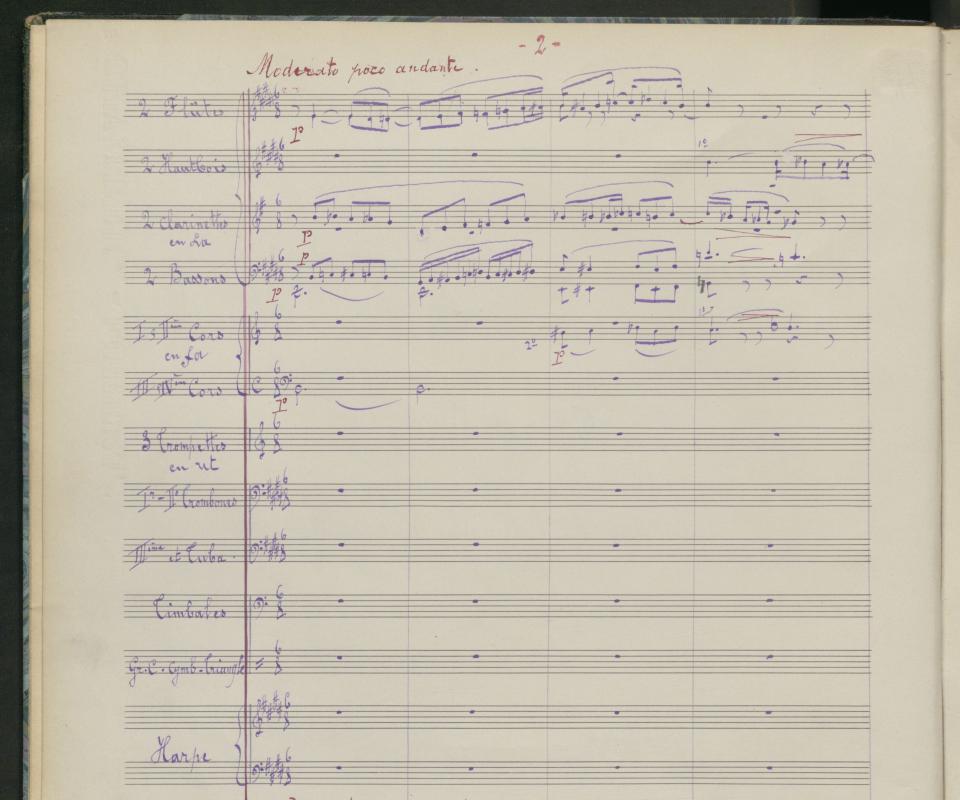 - 2 -
Moderato poco andante .
2 Flûtes
2 Hautbois
2 Clarinettes
en La
2 Bassons
I & IIème Cors
en fa
III IVème Cors
3 Trompettes
en ut
Ir - IIe Trombones
IIIème et Tuba .
Timbales
Gr. C. - Cymb - Triangle
Harpe